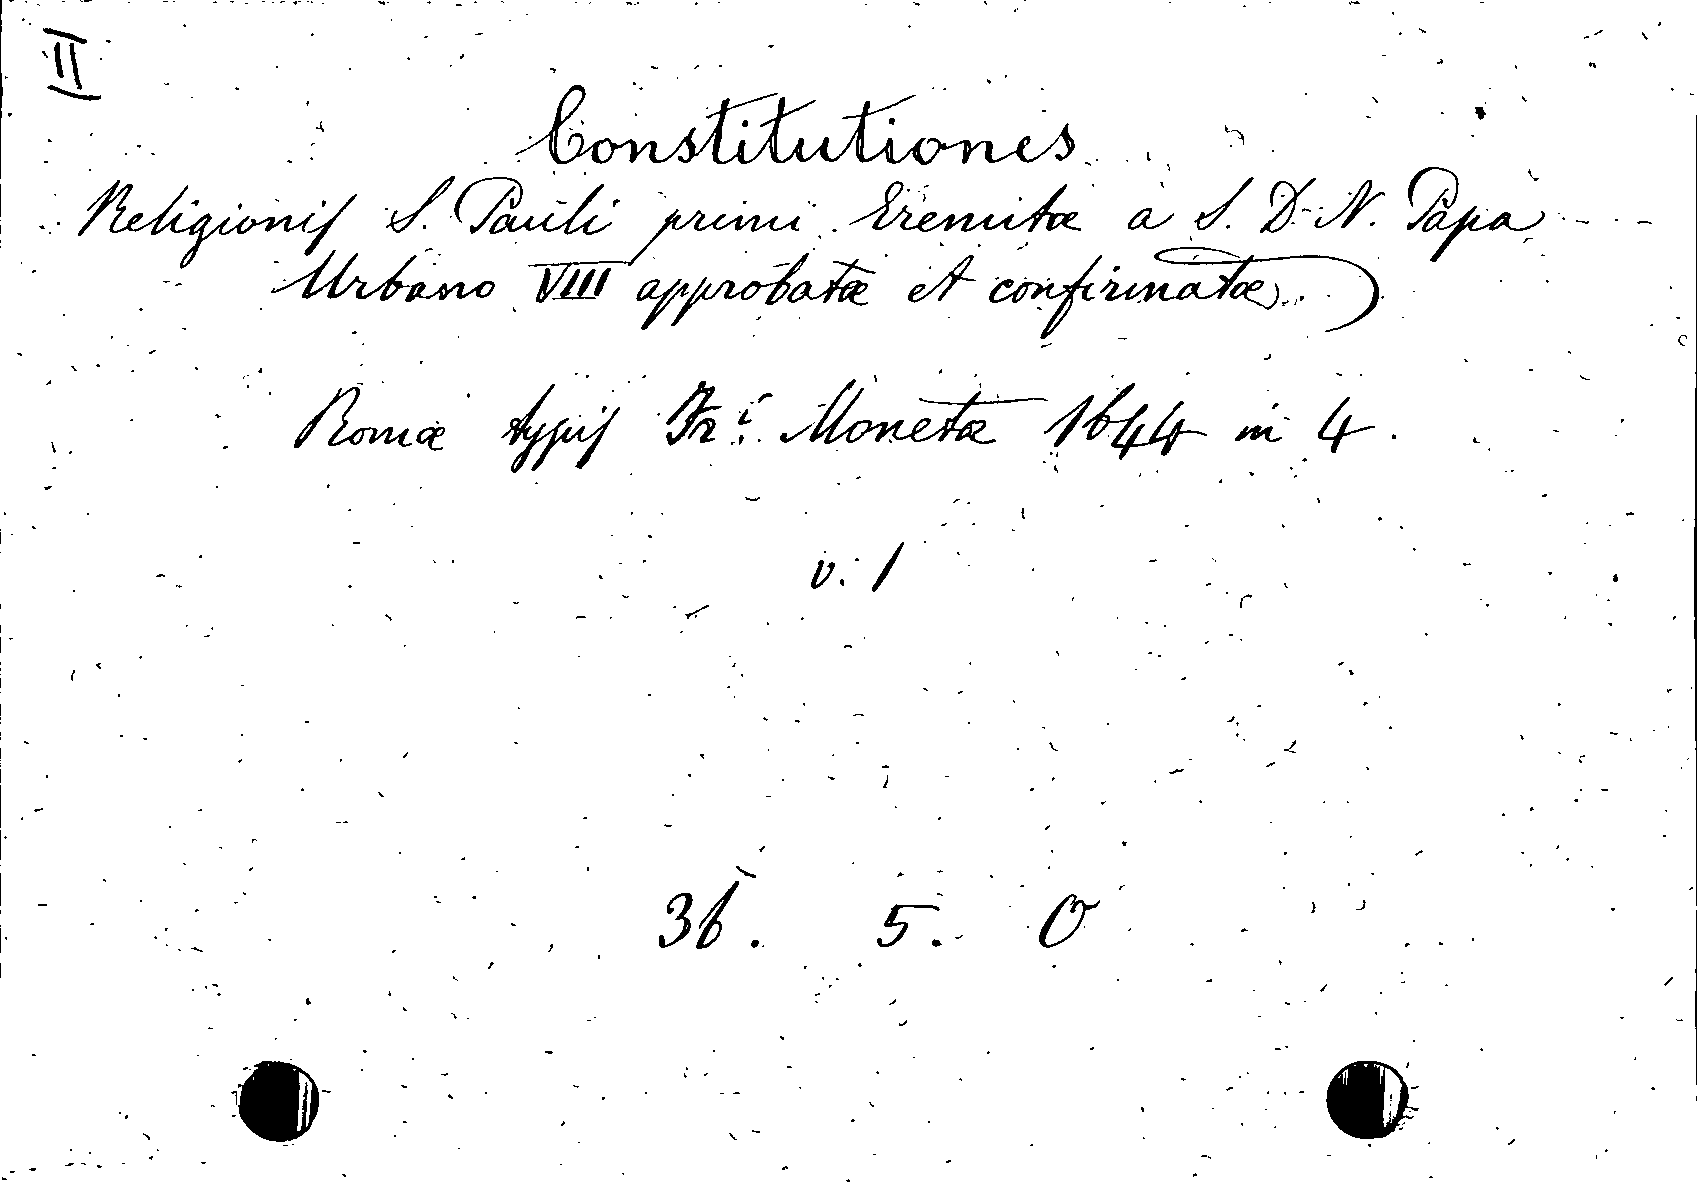 II
Constitutiones
Religionis S. Pauli primi Eremitæ a S. D. N. Papa
Urbano VIII approbatæ et confirmatæ.
Romæ typis Fr.i Monetæ 1644 in 4.
v. 1
36. 5. O